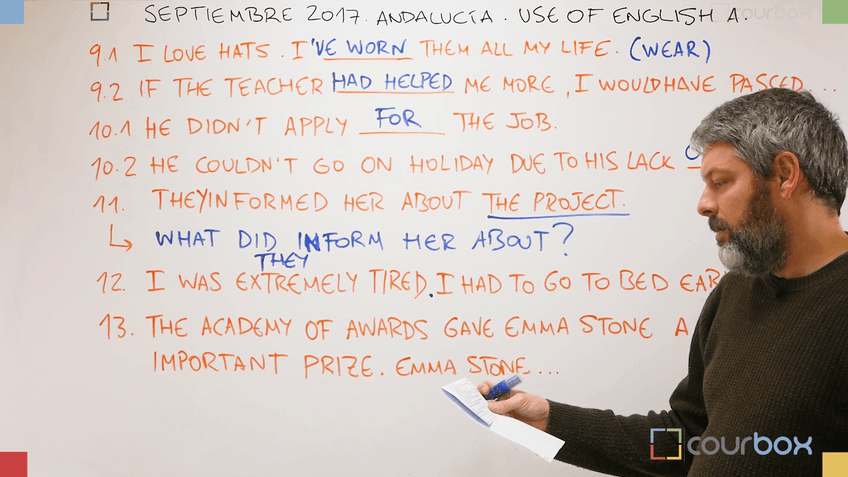 SEPTIEMBRE 2017. ANDALUCÍA. USE OF ENGLISH A.
courbox
9.1 I LOVE HATS. I'VE WORN THEM ALL MY LIFE. (WEAR)
9.2 IF THE TEACHER HAD HELPED ME MORE, I WOULD HAVE PASSED....
10.1 HE DIDN'T APPLY FOR THE JOB.
10.2 HE COULDN'T GO ON HOLIDAY DUE TO HIS LACK
11. THEY INFORMED HER ABOUT THE PROJECT.
WHAT DID INFORM HER ABOUT?
THEY
12. I WAS EXTREMELY TIRED. I HAD TO GO TO BED
13. THE ACADEMY OF AWARDS GAVE EMMA STONE A
IMPORTANT PRIZE. EMMA STONE...
courbox